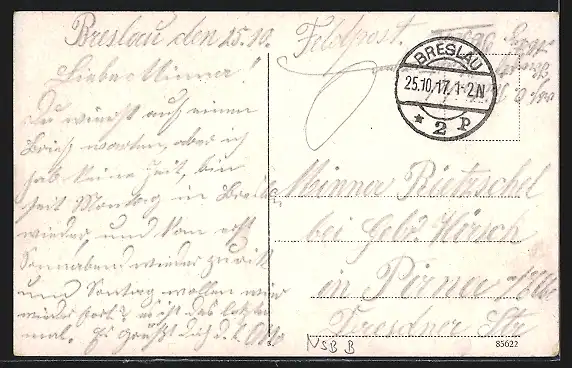 Breslau den 25.10.
Liebe Minna!
Du wirst auf einen
Brief warten, aber ich
hab keine Zeit, bin
seit Montag in Breslau
wieder, und kom erst
Sonnabend wieder zurük
und Sontag wollen wir
wieder fort? es ist das letzte
mal. Es grüßt dich d. l. Otto
Feldpost.
BRESLAU
25.10.17.1-2N
* 2 p
Minna Rietzschel
bei Gebr. Hörsch
in Pirna a/Elbe
Dresdner Str
NSB B
85622